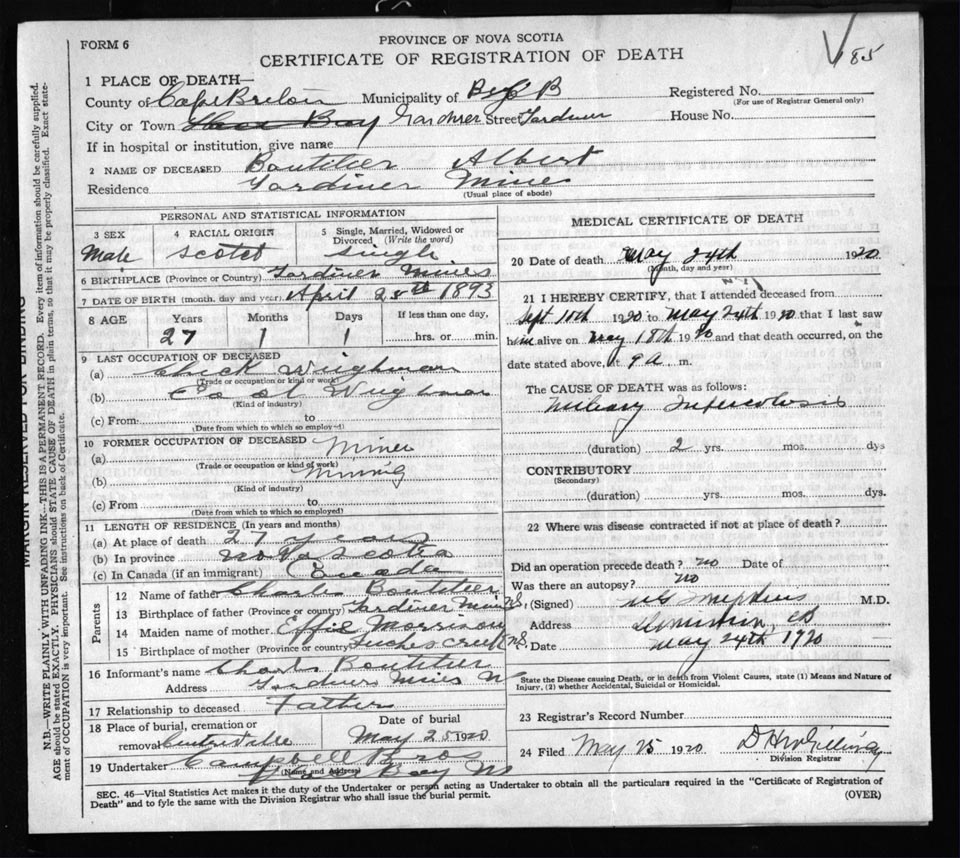 FORM 6
PROVINCE OF NOVA SCOTIA
CERTIFICATE OF REGISTRATION OF DEATH
185
1 PLACE OF DEATH—
County of Cape Breton Municipality of
Registered No.
(For use of Registrar General only)
City or Town Glace Bay Gardner Street Gardner House No.
If in hospital or institution, give name
2 NAME OF DECEASED Boutilier Albert
Residence Gardiner Mines
(Usual place of abode)
PERSONAL AND STATISTICAL INFORMATION
3 SEX 4 RACIAL ORIGIN 5 Single, Married, Widowed or Divorced (Write the word)
Male Scotch Single
6 BIRTHPLACE (Province or Country) Gardiner Mines
7 DATE OF BIRTH (month, day and year) April 25th 1893
8 AGE Years Months Days If less than one day,
27 1 1 hrs. or min.
9 LAST OCCUPATION OF DECEASED
(a) Check Weighman
(Trade or occupation or kind or work)
(b) Coal Weighman
(Kind of industry)
(c) From to
(Date from which to which so employed)
10 FORMER OCCUPATION OF DECEASED
(a) Miner
(Trade or occupation or kind of work)
(b) Mining
(Kind of industry)
(c) From to
(Date from which to which so employed)
11 LENGTH OF RESIDENCE (In years and months)
(a) At place of death 27 years
(b) In province Nova Scotia
(c) In Canada (if an immigrant) Canada
Parents
12 Name of father Charles Boutilier
13 Birthplace of father (Province or country) Gardiner Mines N.S.
14 Maiden name of mother Effie Morrison
15 Birthplace of mother (Province or country) Creek N.S.
16 Informant's name Charles Boutilier
Address Gardiners Mines N
17 Relationship to deceased Father
18 Place of burial, cremation or removal Centreville
Date of burial
May 25 1920
19 Undertaker Campbell Bros
(Name and Address)
Bay N
MEDICAL CERTIFICATE OF DEATH
20 Date of death May 24th 1920
(Month, day and year)
21 I HEREBY CERTIFY, that I attended deceased from
Sept 1920 to May 24th 1920 that I last saw
him alive on May 18th 1920 and that death occurred, on the
date stated above, at 9 a. m.
The CAUSE OF DEATH was as follows:
Miliary Tuberculosis
(duration) 2 yrs. mos. dys
CONTRIBUTORY
(Secondary)
(duration) yrs. mos. dys.
22 Where was disease contracted if not at place of death?
Did an operation precede death? no Date of
Was there an autopsy? no
(Signed) M.D.
Address Dominion, CB
Date May 24th 1920
State the Disease causing Death, or in death from Violent Causes, state (1) Means and Nature of
Injury, (2) whether Accidental, Suicidal or Homicidal.
23 Registrar's Record Number
24 Filed May 25 1920
Division Registrar
SEC. 46—Vital Statistics Act makes it the duty of the Undertaker or person acting as Undertaker to obtain all the particulars required in the "Certificate of Registration of
Death" and to fyle the same with the Division Registrar who shall issue the burial permit.
(OVER)
MARGIN RESERVED FOR BINDING
N.B.—WRITE PLAINLY WITH UNFADING INK—THIS IS A PERMANENT RECORD. Every item of information should be carefully supplied.
AGE should be stated EXACTLY. PHYSICIANS should STATE CAUSE OF DEATH in plain terms, so that it may be properly classified. Exact state-
ment of OCCUPATION is very important. See instructions on back of Certificate.